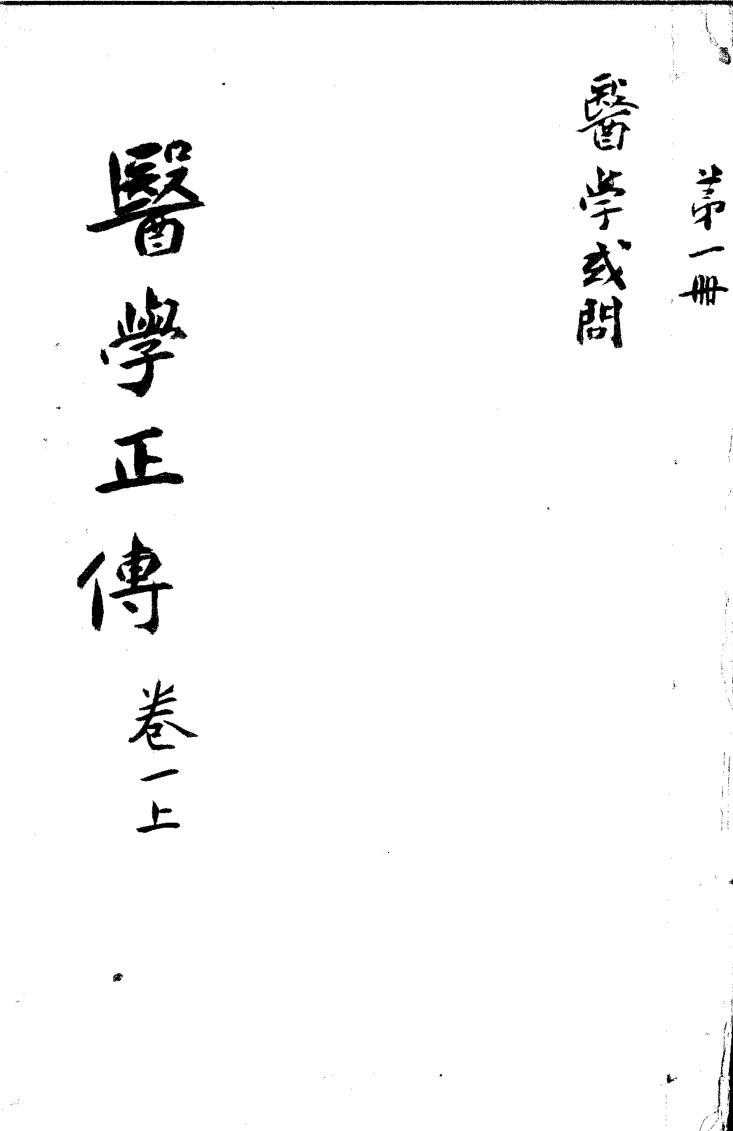 第一冊
醫学或問
醫學正傳 卷一上